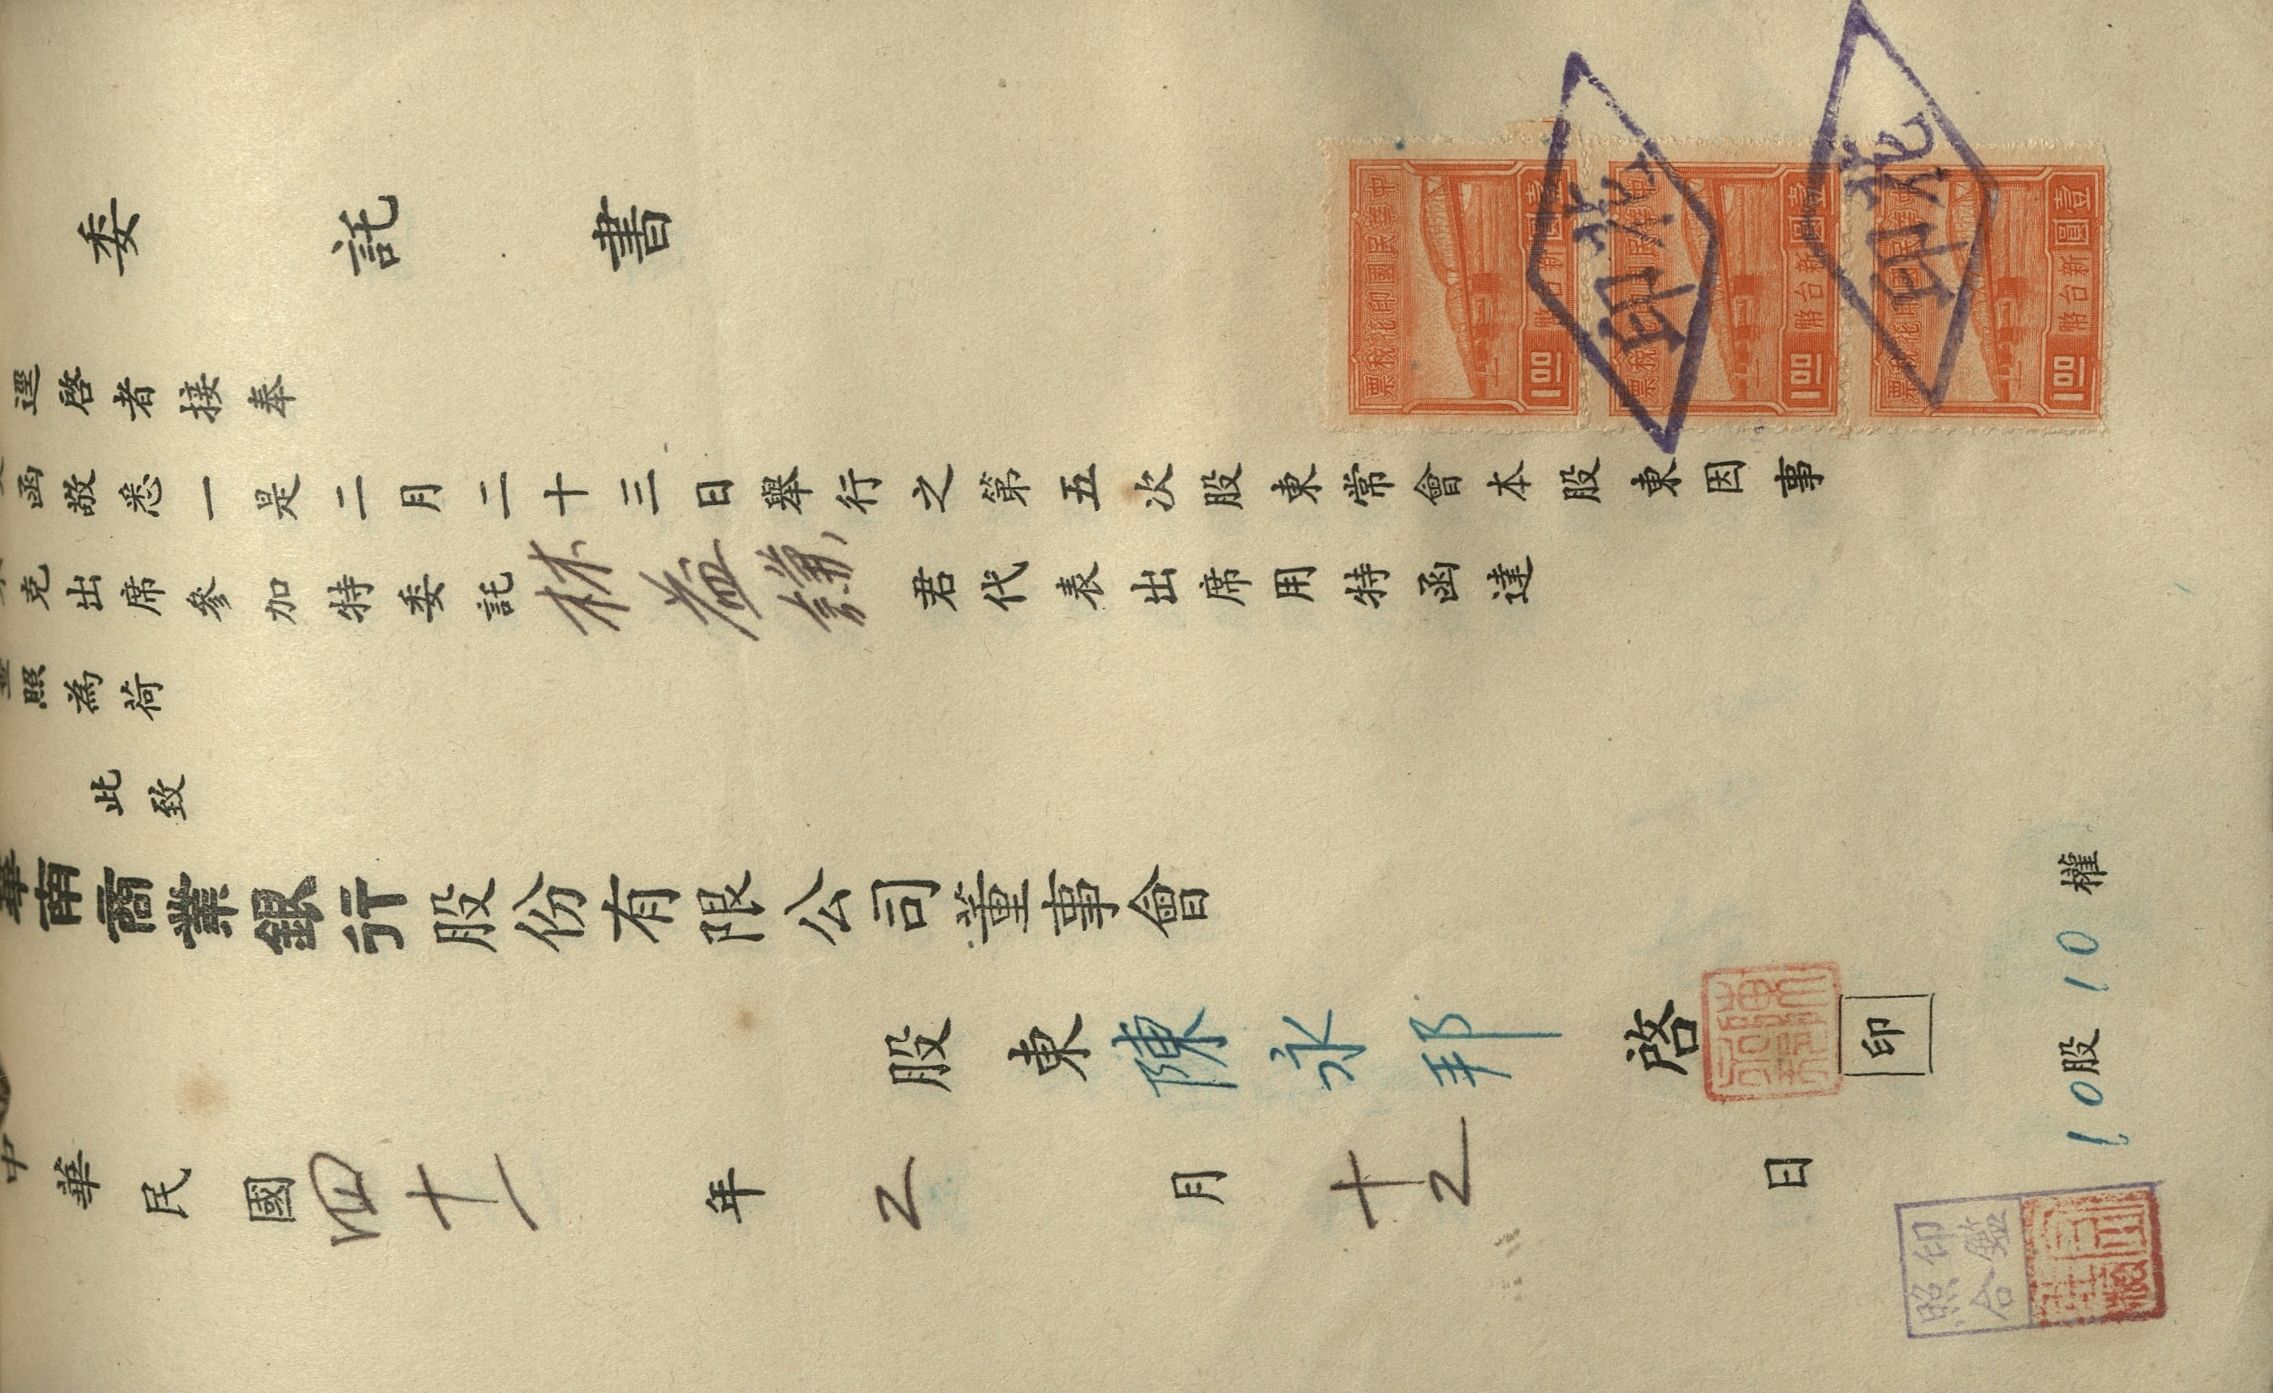 委託書
逕啓者接奉
函敬悉一是二月二十三日舉行之第五次股東常會本股東因事
克出席參加特委託林益謙君代表出席用特函達
照為荷
此致
華南商業銀行股份有限公司董事會
股東陳永邦啓
印
中華民國四十一年2月十2日
10股10權
中華民國印花稅票
壹圓新台幣1.00
中華民國印花稅票
壹圓新台幣1.00
中華民國印花稅票
壹圓新台幣1.00
印花
印花
印鑑
照合